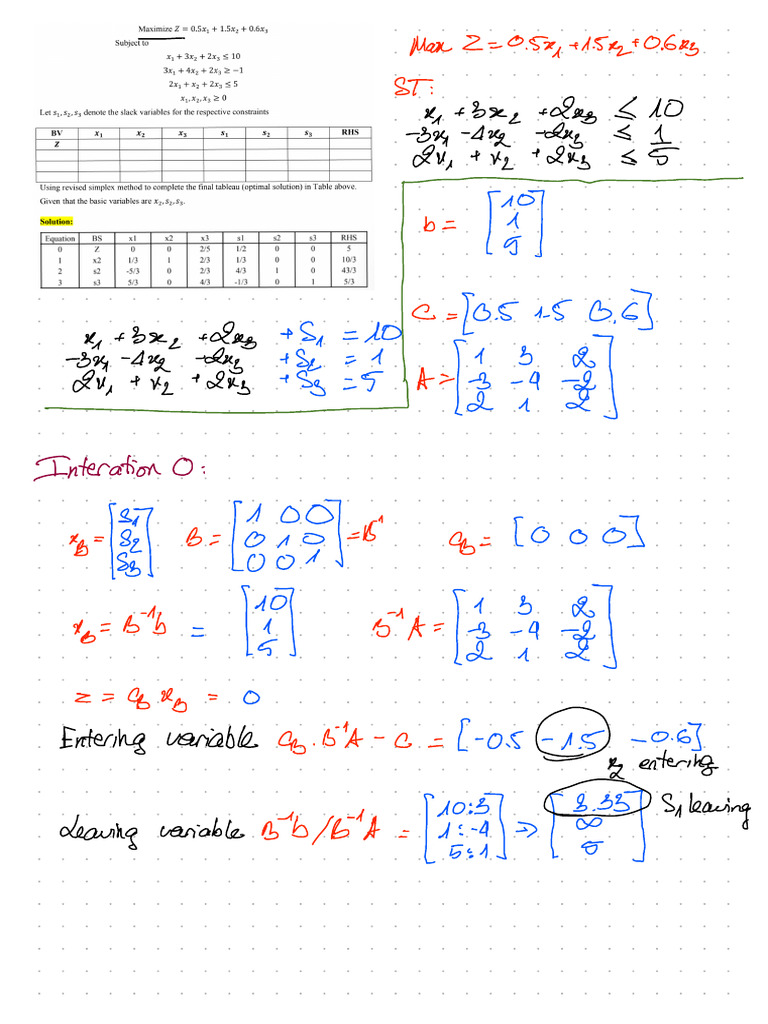 Maximize Z = 0.5x₁ + 1.5x₂ + 0.6x₃
Subject to
x₁ + 3x₂ + 2x₃ ≤ 10
3x₁ + 4x₂ + 2x₃ ≥ −1
2x₁ + x₂ + 2x₃ ≤ 5
x₁, x₂, x₃ ≥ 0
Let s₁, s₂, s₃ denote the slack variables for the respective constraints
BV x₁ x₂ x₃ s₁ s₂ s₃ RHS
Z
Using revised simplex method to complete the final tableau (optimal solution) in Table above.
Given that the basic variables are x₂, s₂, s₃.
Solution:
Equation BS x1 x2 x3 s1 s2 s3 RHS
0 Z 0 0 2/5 1/2 0 0 5
1 x2 1/3 1 2/3 1/3 0 0 10/3
2 s2 -5/3 0 2/3 4/3 1 0 43/3
3 s3 5/3 0 4/3 -1/3 0 1 5/3
Max Z = 0.5x₁ + 1.5x₂ + 0.6x₃
ST:
x₁ + 3x₂ + 2x₃ ≤ 10
-3x₁ - 4x₂ - 2x₃ ≤ 1
2x₁ + x₂ + 2x₃ ≤ 5
b = [10
1
5]
C = [0.5 1.5 0.6]
A = [1 3 2
-3 -4 -2
2 1 2]
x₁ + 3x₂ + 2x₃ + S₁ = 10
-3x₁ - 4x₂ - 2x₃ + S₂ = 1
2x₁ + x₂ + 2x₃ + S₃ = 5
Interation 0:
x_B = [S₁
S₂
S₃]
B = [1 0 0
0 1 0
0 0 1] = B⁻¹
c_B = [0 0 0]
x_B = B⁻¹b = [10
1
5]
B⁻¹A = [1 3 2
-3 -4 -2
2 1 2]
z = c_B x_B = 0
Entering variable c_B.B⁻¹A - C = [-0.5 -1.5 -0.6]
x₂ entering
Leaving variable B⁻¹b/B⁻¹A = [10:3
1:-4
5:1] → [3.33
∞
5]
S₁ leaving